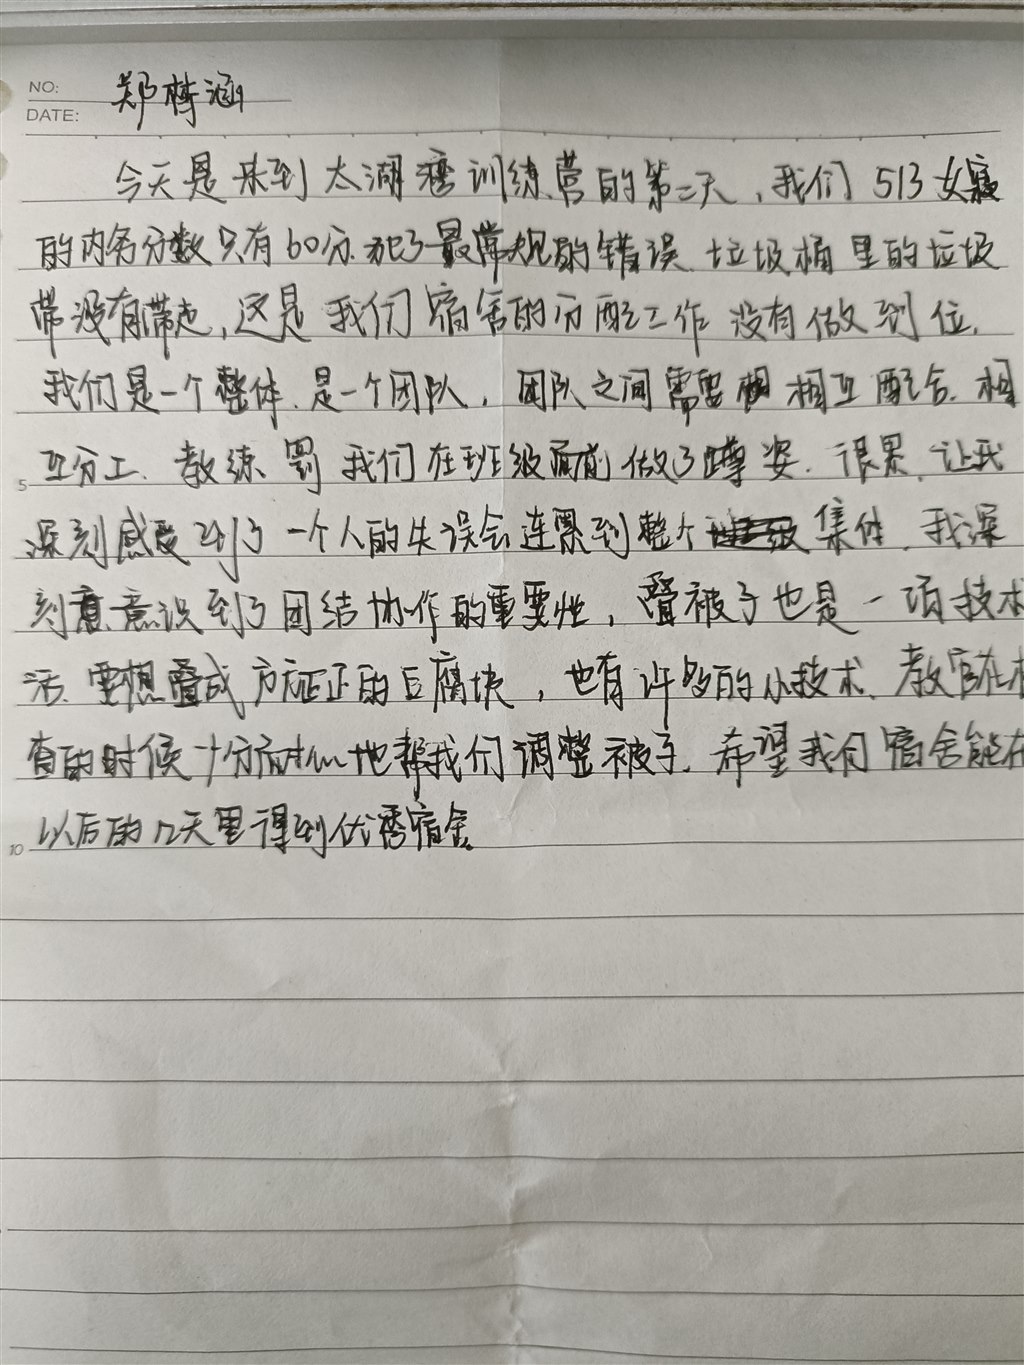 NO: 郑梓涵
DATE:
今天是来到太湖湾训练营的第二天,我们513女寝
的内务分数只有60分.犯了最常规的错误.垃圾桶里的垃圾
带没有带走,这是我们宿舍的分配工作没有做到位.
我们是一个整体.是一个团队,团队之间需要相互配合.相
互分工.教练罚我们在班级面前做了蹲姿.很累.让我
深刻感受到了一个人的失误会连累到整个集体.我深
刻意意识到了团结协作的重要性,叠被子也是一项技术
活.要想叠成方方正正的豆腐块,也有许多的小技术.教官在检
查的时候十分耐心地帮我们调整被子.希望我们宿舍能在
以后的几天里得到优秀宿舍。
5
10